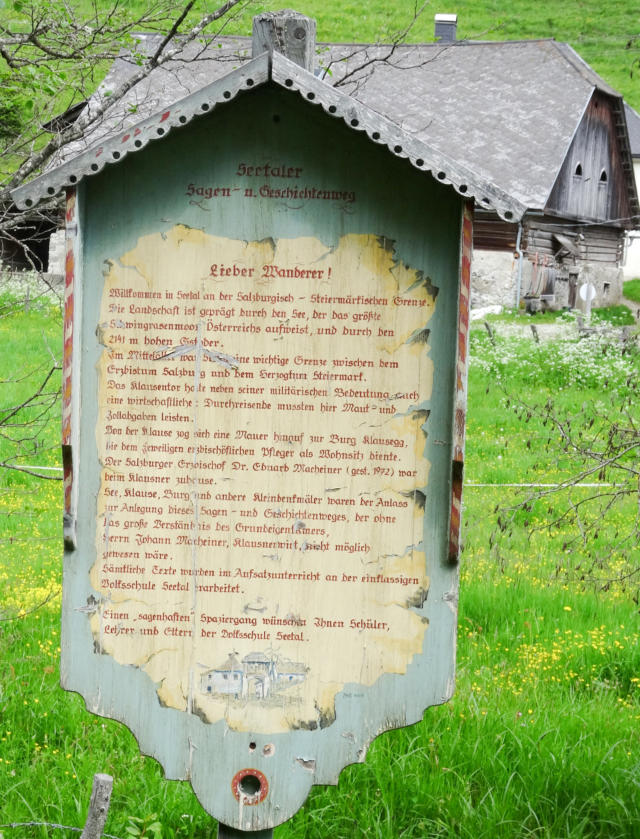 Seetaler
Sagen- u. Geschichtenweg
Lieber Wanderer!
Willkommen in Seetal an der Salzburgisch - Steiermärkischen Grenze.
Die Landschaft ist geprägt durch den See, der das größte
Schwingrasenmoor Österreichs aufweist, und durch den
2141 m hohen
Im Mittelalter war eine wichtige Grenze zwischen dem
Erzbistum Salzburg und dem Herzogtum Steiermark.
Das Klausentor hatte neben seiner militärischen Bedeutung auch
eine wirtschaftliche: Durchreisende mussten hier Maut- und
Zollabgaben leisten.
Von der Klause zog sich eine Mauer hinauf zur Burg Klausegg,
die dem jeweiligen erzbischöflichen Pfleger als Wohnsitz diente.
Der Salzburger Erzbischof Dr. Eduard Macheiner (gest. 1972) war
beim Klausner zuhause.
See, Klause, Burg und andere Kleindenkmäler waren der Anlass
zur Anlegung dieses Sagen- und Geschichtenweges, der ohne
das große Verständnis des Grundeigentümers,
Herrn Johann Macheiner, Klausnerwirt, nicht möglich
gewesen wäre.
Sämtliche Texte wurden im Aufsatzunterricht an der einklassigen
Volksschule Seetal erarbeitet.
Einen „sagenhaften" Spaziergang wünschen Ihnen Schüler,
Lehrer und Eltern der Volksschule Seetal.